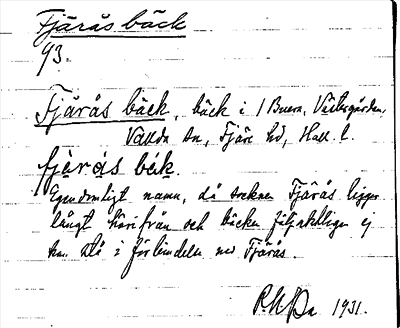 Fjärås bäck
93.
Fjärås bäck, bäck i / Buera, Västergården,
Vallda sn, Fjäre hd, Hall. l.
fjęrås bęk.
Egendomligt namn, då socknen Fjärås ligger
långt härifrån och bäcken följaktligen ej
kan stå i förbindelse med Fjärås.
1931.